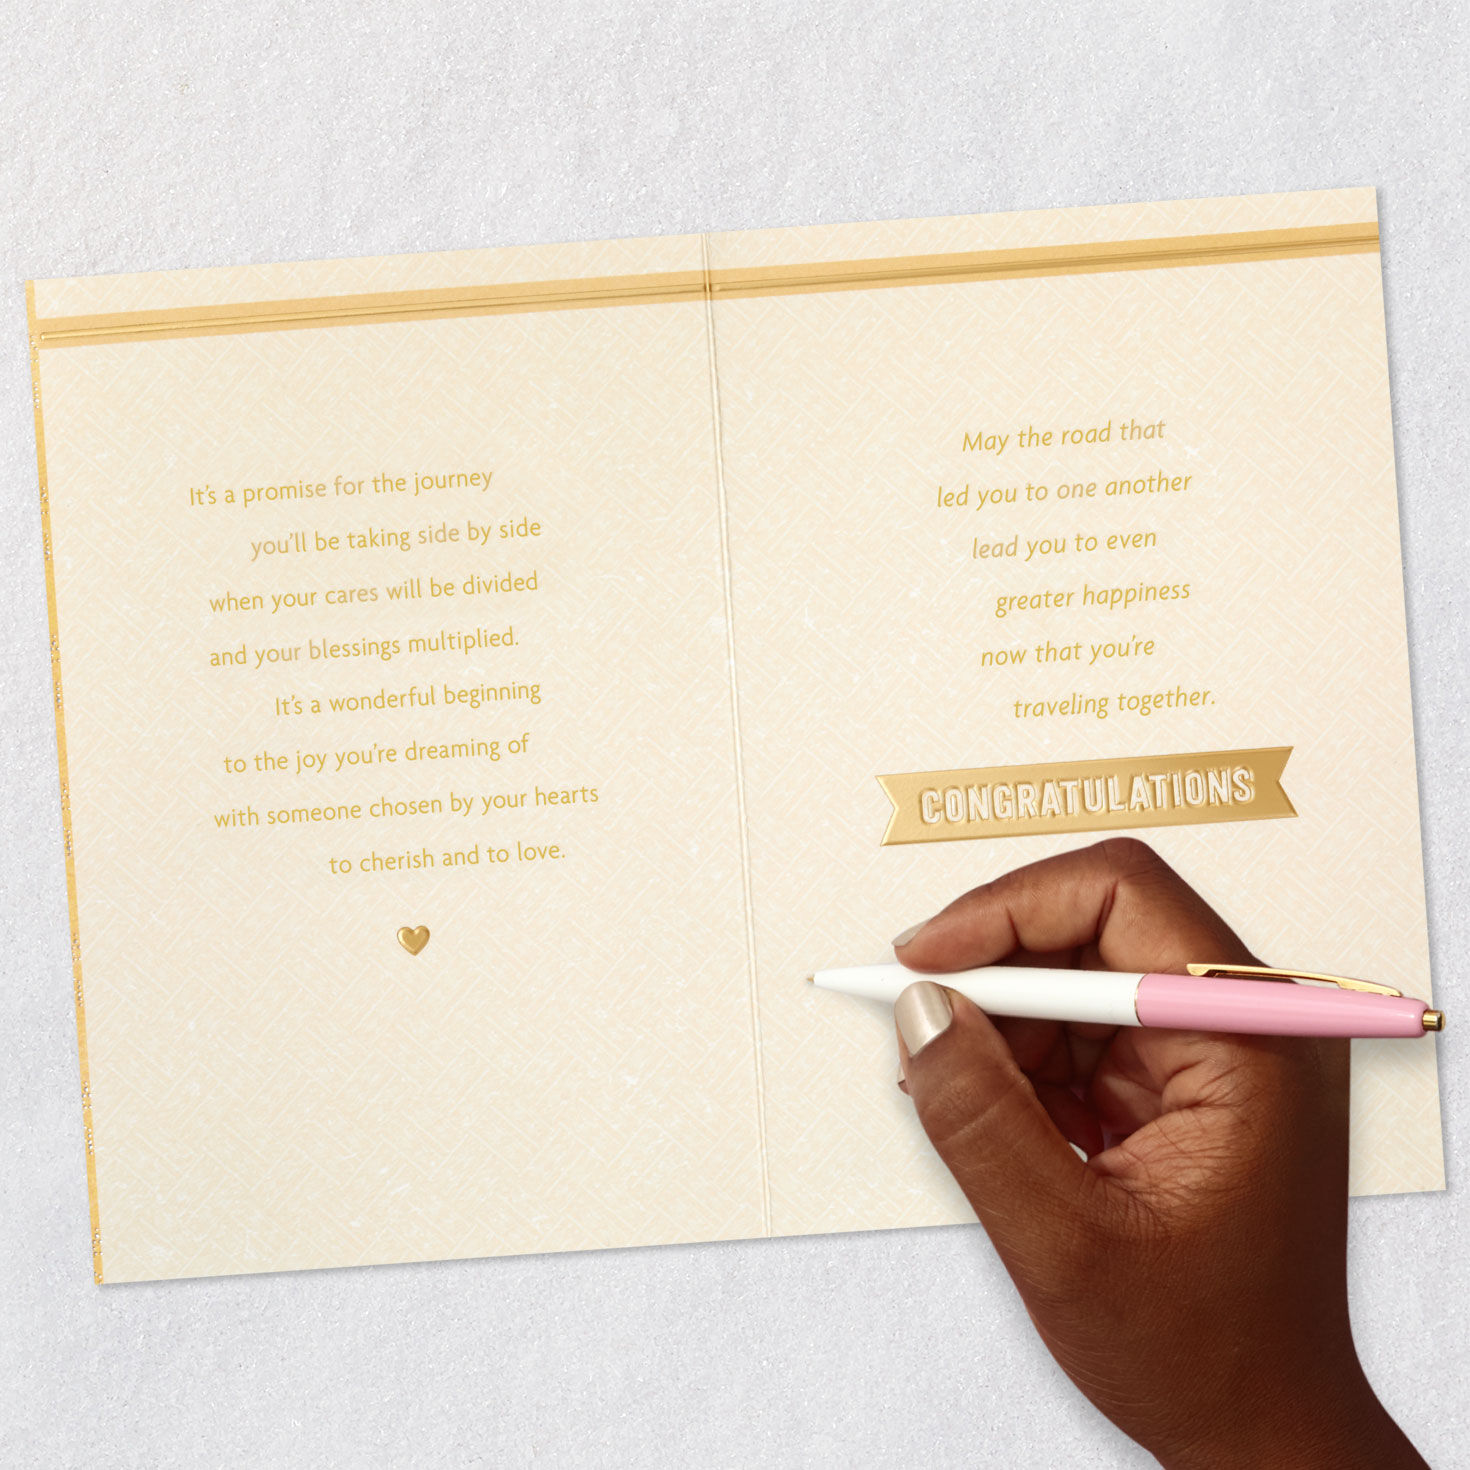 It's a promise for the journey
you'll be taking side by side
when your cares will be divided
and your blessings multiplied.
It's a wonderful beginning
to the joy you're dreaming of
with someone chosen by your hearts
to cherish and to love.
May the road that
led you to one another
lead you to even
greater happiness
now that you're
traveling together.
CONGRATULATIONS